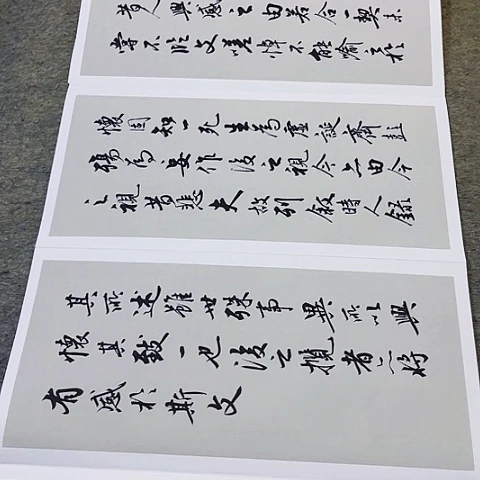 昔人興感之由若合一契未
嘗不臨文嗟悼不能喻之於
懷固知一死生為虛誕齊彭
殤為妄作後之視今亦由今
之視昔悲夫故列敘時人錄
其所述雖世殊事異所以興
懷其致一也後之攬者亦將
有感於斯文